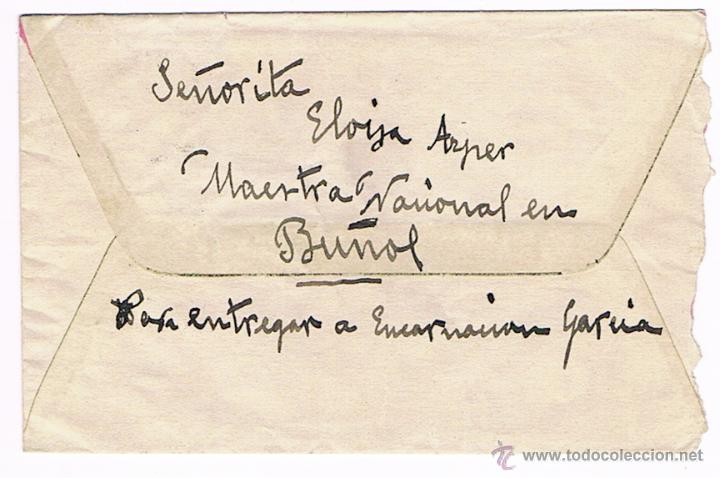 Señorita
Eloisa Asper
Maestra Nacional en
Buñol
Para entregar a Encarnacion Garcia
www.todocoleccion.net